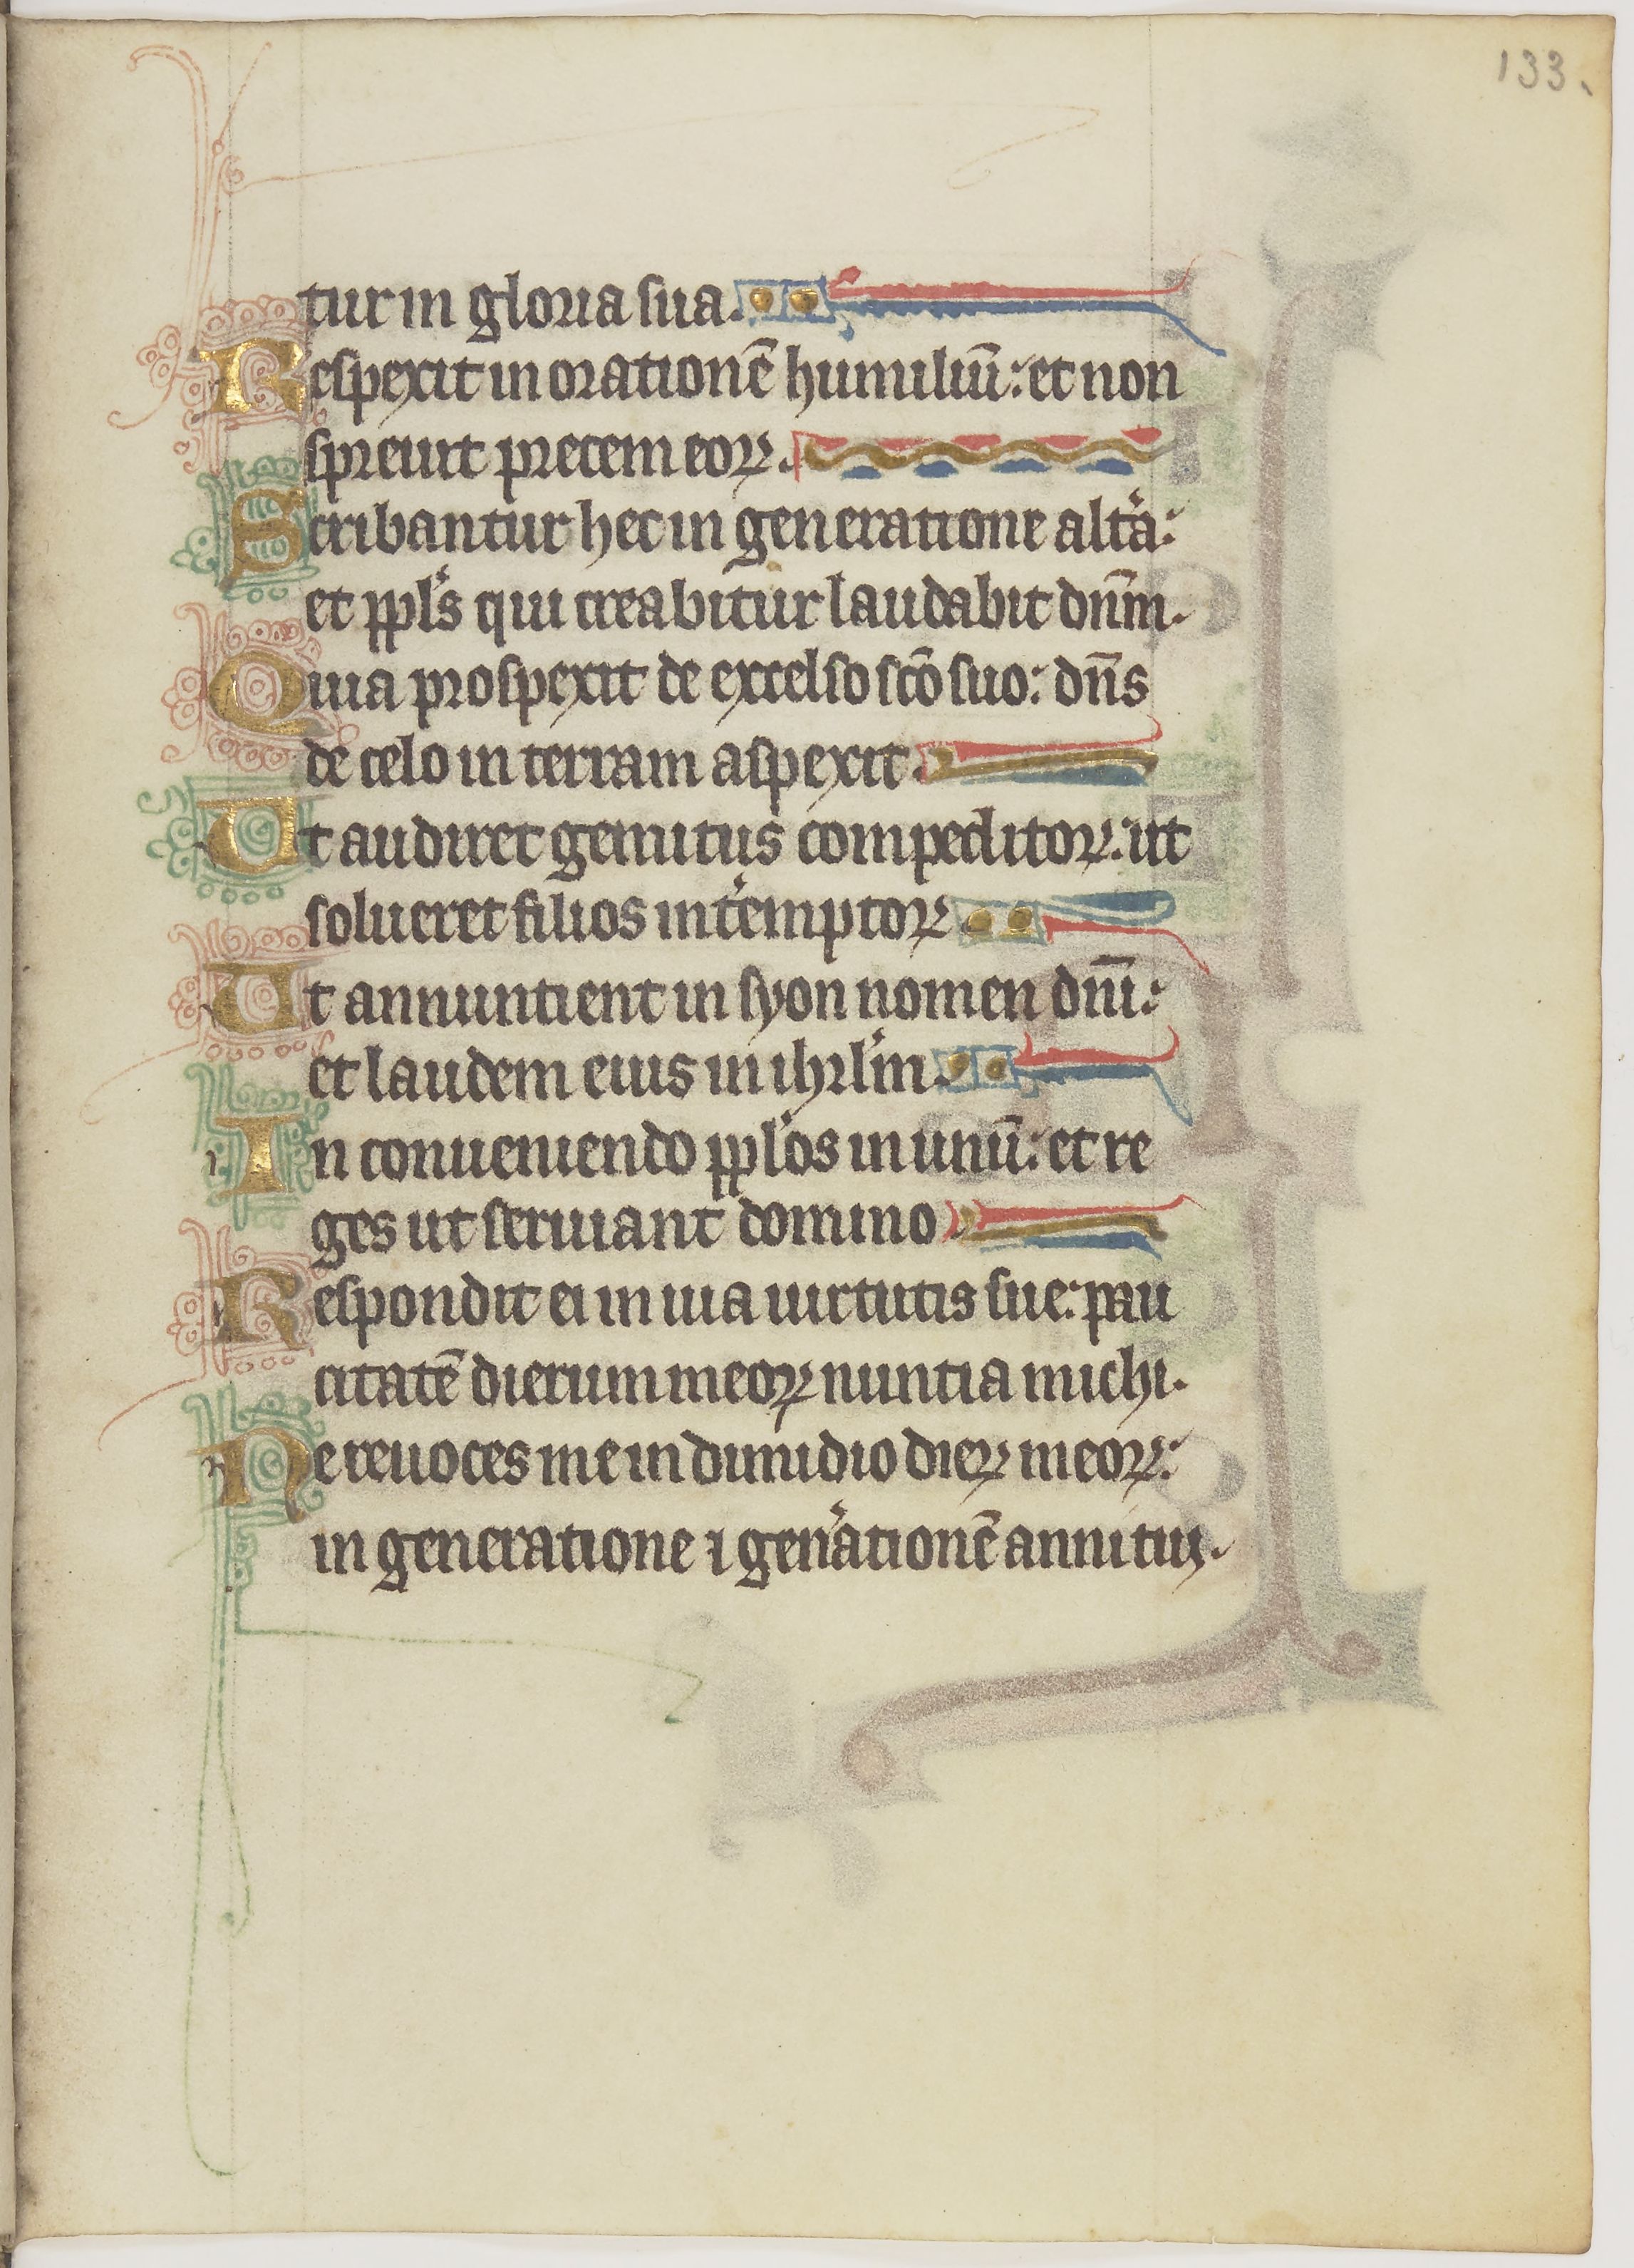 133.
tur in gloria sua.
Respexit in orationē humiliū: et non
spreuit precem eoꝝ.
Scribantur hec in generatione altͣa:
et ppl's qui creabitur laudabit dn̄m.
Quia prospexit de excelso scō suo: dn̄s
de celo in terram aspexit.
Ut audiret gemitus compeditoꝝ: ut
solueret filios intͤemptoꝝ.
Ut annuntient in syon nomen dn̄i:
et laudem eius in ihrl'm.
In conueniendo ppl'os in unū: et re
ges ut seruiant domino
Respondit ei in uia uirtutis sue: pau
citatē dierum meoꝝ nuntia michi.
Ne reuoces me in dimidio dieꝝ meoꝝ:
in generatione ⁊ gen'ationē anni tui.